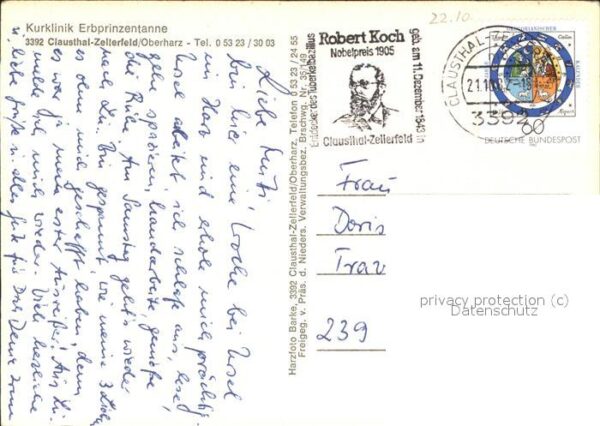 Kurklinik Erbprinzentanne
3392 Clausthal-Zellerfeld/Oberharz - Tel. 0 53 23 / 30 03
Liebe
bin hier eine Woche bei Ursel
im Harz und erhole mich prächtig.
Ursel arbeitet, ich schlafe aus, lese,
gehe spazieren, handarbeite, genieße
die Ruh. Am Samstag geht's wieder
nach Bin gespannt, wie meine 3
es ohne mich geschafft haben, denn
es war ja mein erster Ausreißer! Am
melde ich mich wieder. Viele herzliche
u. liebe Grüße u. alles Gute für Dich, Deine
Harzfoto Barke, 3392 Clausthal-Zellerfeld/Oberharz, Telefon 0 53 23 / 24 55
Freigeg. v. Präs. d. Nieders. Verwaltungsbez. Brschwg. Nr. 35/149
22.10.
Robert Koch
Nobelpreis 1905
Entdecker des Tuberkelbazillus
geb. am 11. Dezember 1843 in
Clausthal-Zellerfeld
CLAUSTHAL-
21.10.
3392
GREGORIANISCHER
KALENDER
60
DEUTSCHE BUNDESPOST
Frau
Doris
Trav
239
privacy protection (c)
Datenschutz